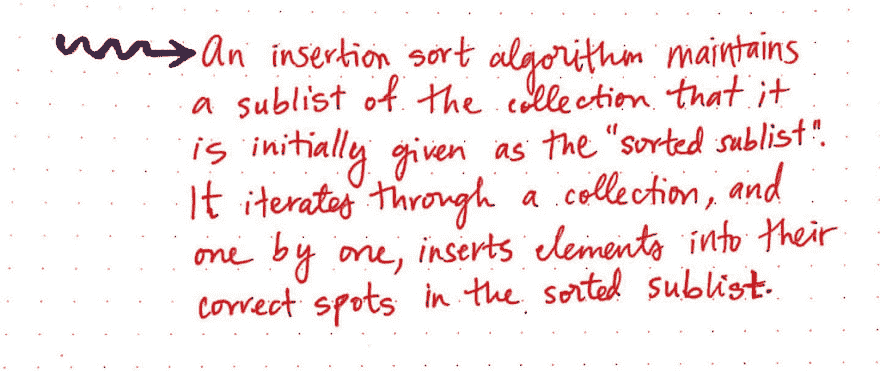 An insertion sort algorithm maintains
a sublist of the collection that it
is initially given as the "sorted sublist".
It iterates through a collection, and
one by one, inserts elements into their
correct spots in the sorted sublist.